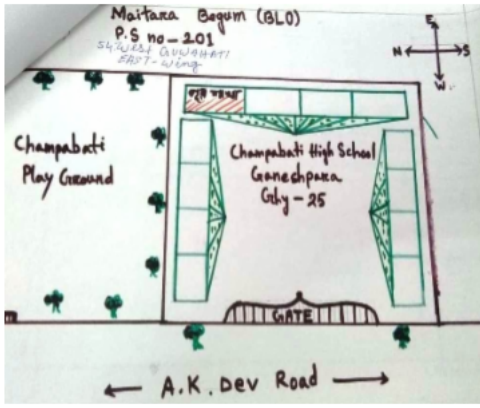 Maitara Begum (BLO)
P.S no - 201
54. West GUWAHATI
EAST - Wing
E
N
S
W
Champabati
Play Ground
Champabati High School
Ganeshpara
Ghy - 25
GATE
A.K. Dev Road